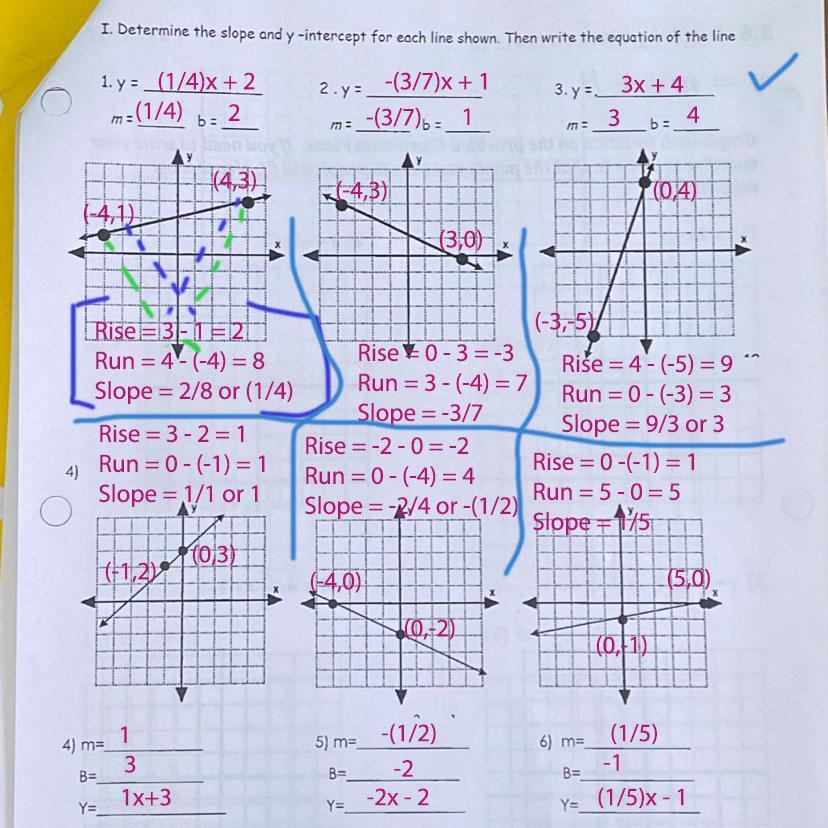 I. Determine the slope and y -intercept for each line shown. Then write the equation of the line
1. y = (1/4)x + 2
m = (1/4) b = 2
2 . y = -(3/7)x + 1
m = -(3/7) b = 1
3. y = 3x + 4
m = 3 b = 4
y
(4,3)
(-4,1)
x
Rise = 3 - 1 = 2
Run = 4 - (-4) = 8
Slope = 2/8 or (1/4)
y
(-4,3)
(3,0)
x
Rise = 0 - 3 = -3
Run = 3 - (-4) = 7
Slope = -3/7
y
(0,4)
x
(-3,-5)
Rise = 4 - (-5) = 9
Run = 0 - (-3) = 3
Slope = 9/3 or 3
4)
Rise = 3 - 2 = 1
Run = 0 - (-1) = 1
Slope = 1/1 or 1
y
(0,3)
(-1,2)
x
Rise = -2 - 0 = -2
Run = 0 - (-4) = 4
Slope = -2/4 or -(1/2)
y
(-4,0)
x
(0,-2)
Rise = 0 -(-1) = 1
Run = 5 - 0 = 5
Slope = 1/5
y
(5,0)
x
(0,-1)
4) m= 1
B= 3
Y= 1x+3
5) m= -(1/2)
B= -2
Y= -2x - 2
6) m= (1/5)
B= -1
Y= (1/5)x - 1